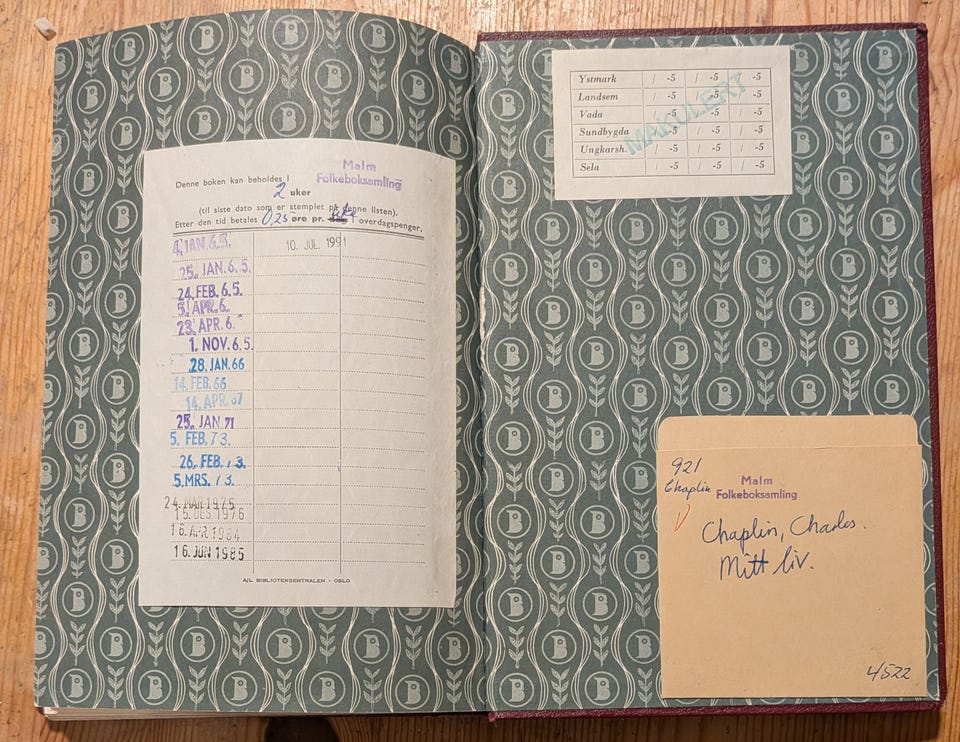 Denne boken kan beholdes i
2 uker
Malm
Folkeboksamling
(til siste dato som er stemplet på denne listen).
Etter den tid betales 0,25 øre pr. uke i overdagspenger.
4. JAN. 6.5.
25. JAN. 6.5.
24. FEB. 6.5.
5. APR. 6.
23. APR. 6.
1. NOV. 6.5.
28. JAN. 66
14. FEB. 66
14. APR. 67
25. JAN. 71
5. FEB. 73.
26. FEB. 73.
5. MRS. 73.
24. MAR 1975
15. DES 1976
16. APR 1984
16. JUN 1985
10. JUL. 1991
A/L BIBLIOTEKSENTRALEN - OSLO
Ystmark / -5 / -5 / -5
Landsem / -5 / -5 / -5
Vada / -5 / -5 / -5
Sundbygda / -5 / -5 / -5
Ungkarsh. / -5 / -5 / -5
Sela / -5 / -5 / -5
MAKULERT
921
Chaplin
Malm
Folkeboksamling
Chaplin, Charles.
Mitt liv.
4522